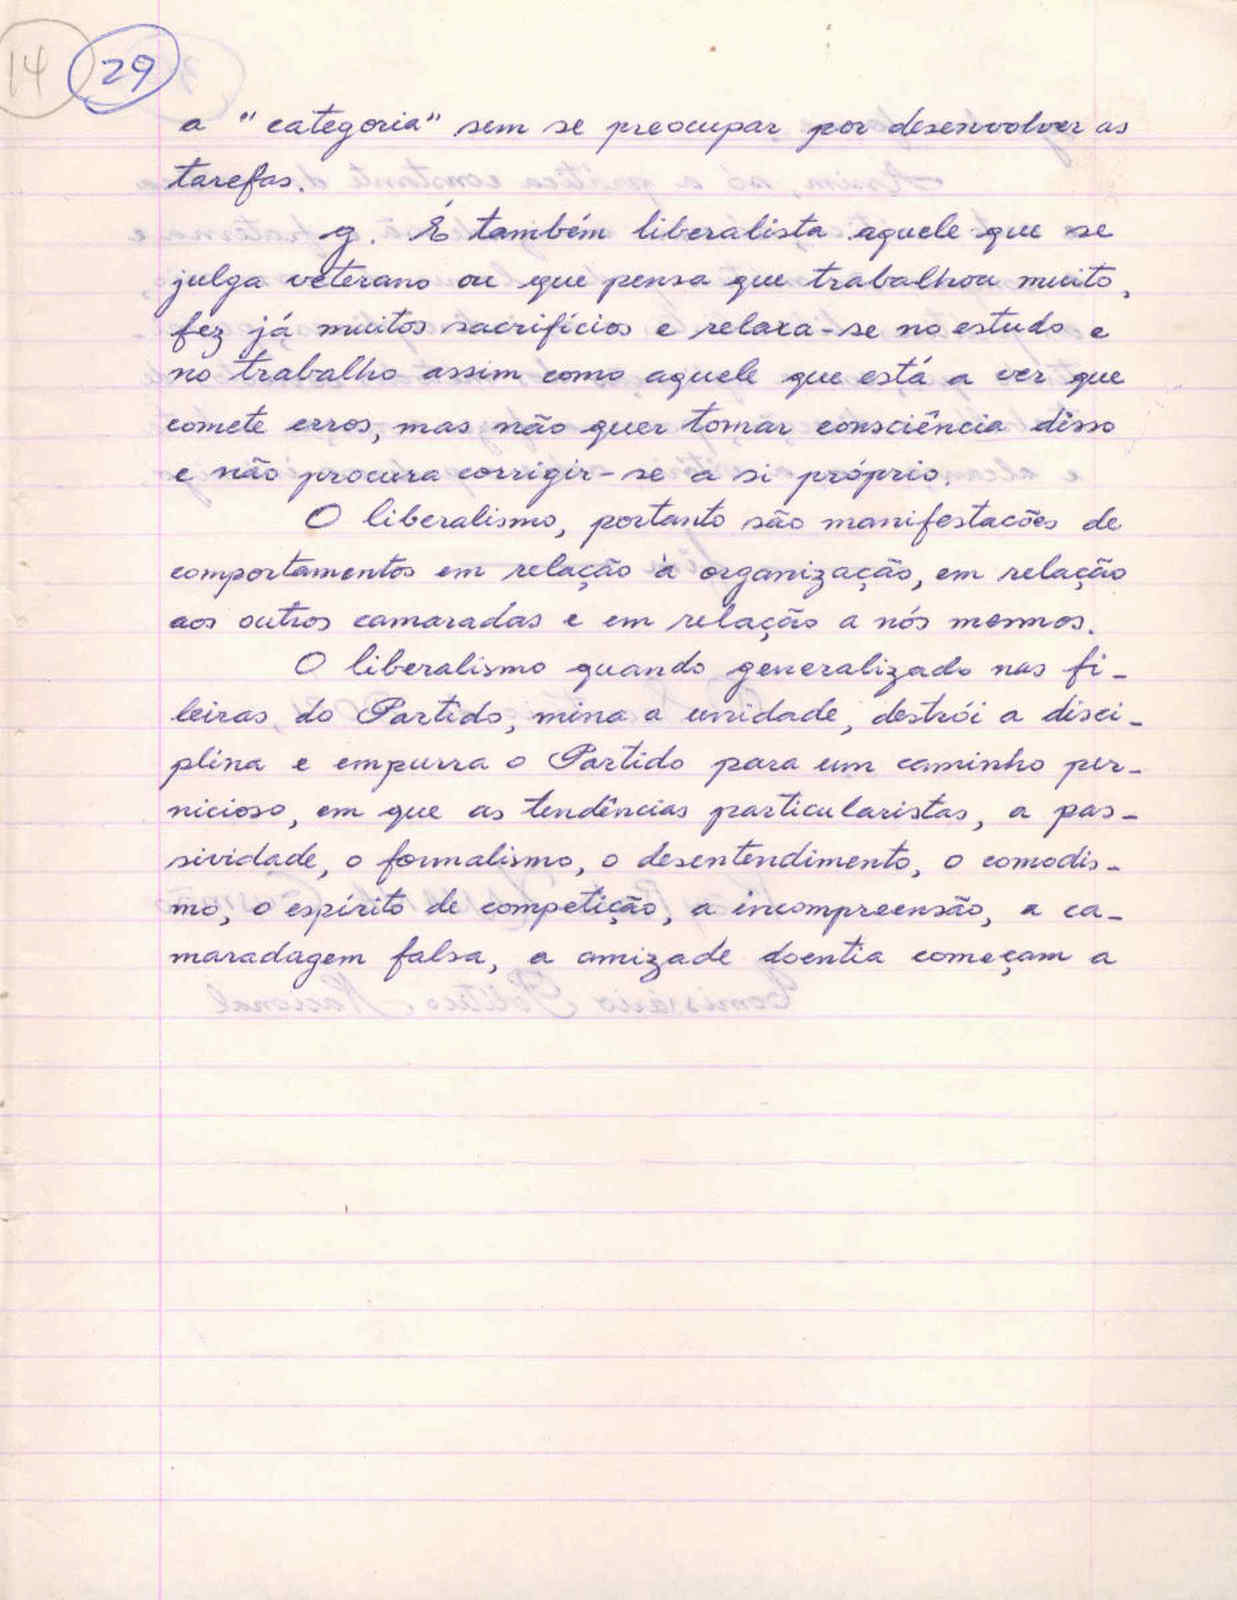 14 29
a "categoria" sem se preocupar por desenvolver as
tarefas.
g. É também liberalista aquele que se
julga veterano ou que pensa que trabalhou muito,
fez já muitos sacrifícios e relaxa-se no estudo e
no trabalho assim como aquele que está a ver que
comete erros, mas não quer tomar consciência disso
e não procura corrigir-se a si próprio.
O liberalismo, portanto são manifestacões de
comportamentos em relação à organização, em relação
aos outros camaradas e em relação a nós mesmos.
O liberalismo quando generalizado nas fi-
leiras do Partido, mina a unidade, destrói a disci-
plina e empurra o Partido para um caminho per-
nicioso, em que as tendências particularistas, a pas-
sividade, o formalismo, o desentendimento, o comodis-
mo, o espírito de competição, a incompreensão, a ca-
maradagem falsa, a amizade doentia começam a